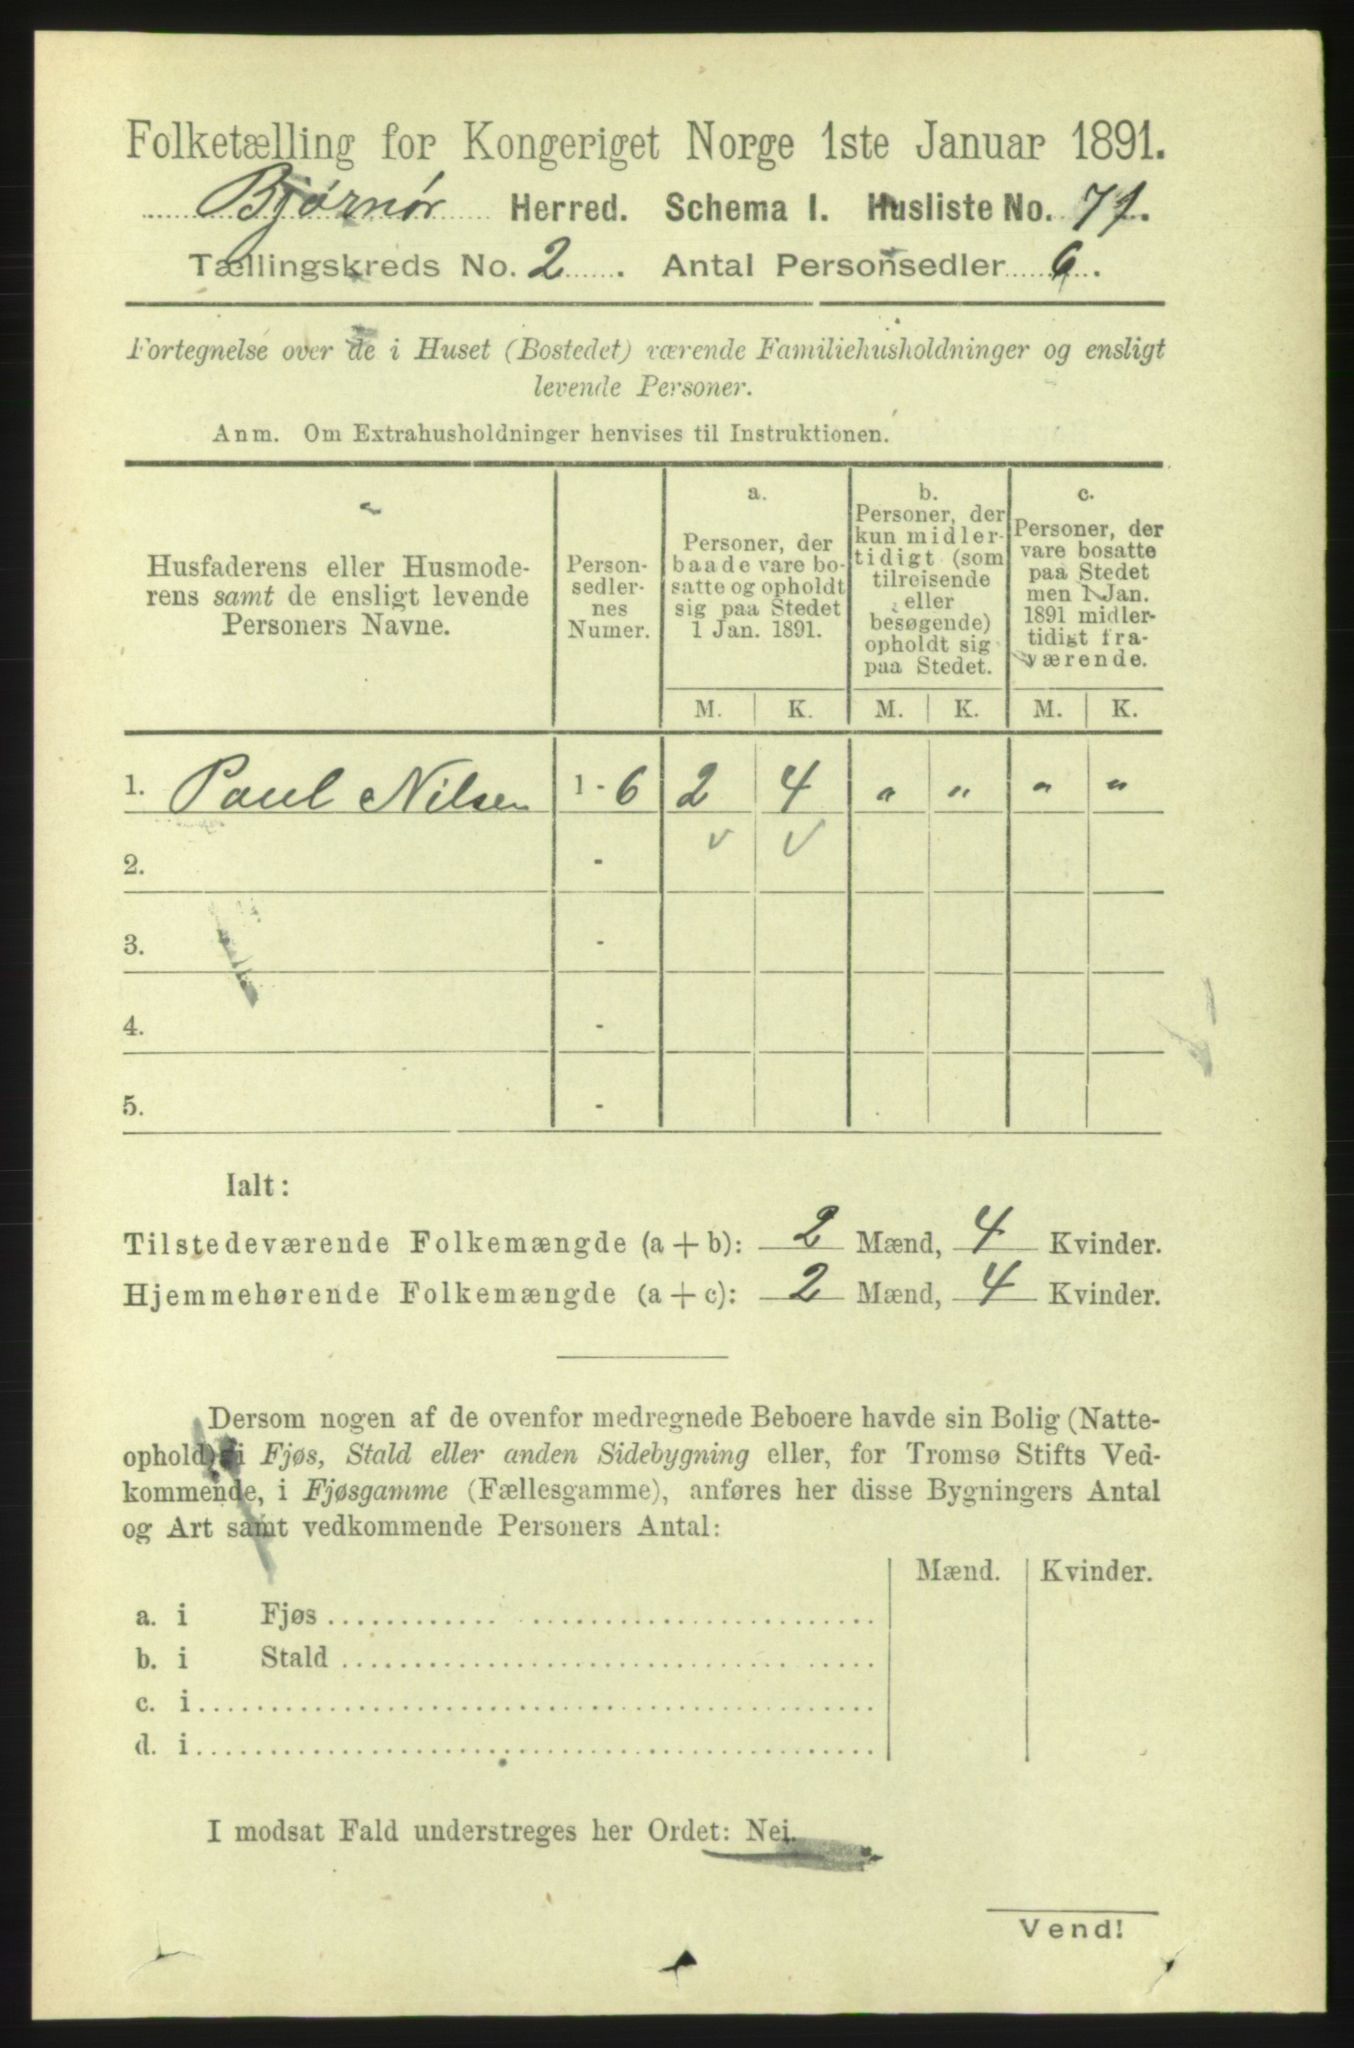 Folketælling for Kongeriget Norge 1ste Januar 1891.
Bjørnør Herred. Schema I. Husliste No. 71.
Tællingskreds No. 2. Antal Personsedler 6.
Fortegnelse over de i Huset (Bostedet) værende Familiehusholdninger og ensligt
levende Personer.
Anm. Om Extrahusholdninger henvises til Instruktionen.
Husfaderens eller Husmode-
rens samt de ensligt levende
Personers Navne.
Person-
sedler-
nes
Numer.
a.
Personer, der
baade vare bo-
satte og opholdt
sig paa Stedet
1 Jan. 1891.
b.
Personer, der
kun midler-
tidigt (som
tilreisende
eller
besøgende)
opholdt sig
paa Stedet.
c.
Personer, der
vare bosatte
paa Stedet
men 1 Jan.
1891 midler-
tidigt fra-
værende.
M. K. M. K. M. K.
1. Paul Nilsen 1 - 6 2 4 " " " "
2. - v v
3. -
4. -
5. -
Ialt:
Tilstedeværende Folkemængde (a + b): 2 Mænd, 4 Kvinder.
Hjemmehørende Folkemængde (a + c): 2 Mænd, 4 Kvinder.
Dersom nogen af de ovenfor medregnede Beboere havde sin Bolig (Natte-
ophold) i Fjøs, Stald eller anden Sidebygning eller, for Tromsø Stifts Ved-
kommende, i Fjøsgamme (Fællesgamme), anføres her disse Bygningers Antal
og Art samt vedkommende Personers Antal:
Mænd. Kvinder.
a. i Fjøs
b. i Stald
c. i
d. i
I modsat Fald understreges her Ordet: Nei.
Vend!